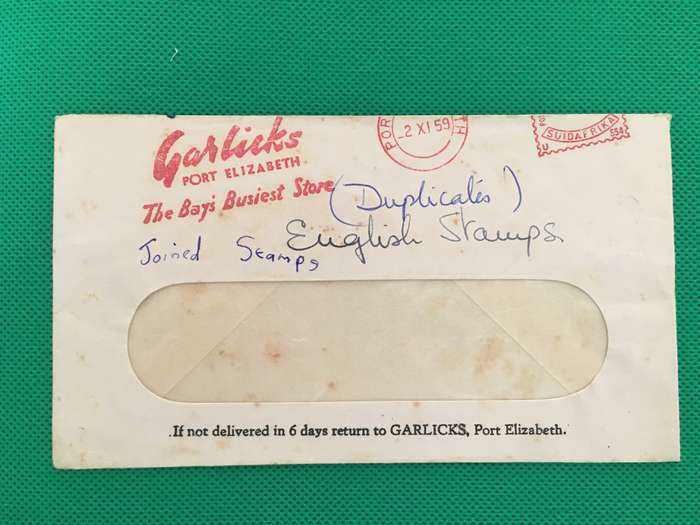 Garlicks
PORT ELIZABETH
The Bay's Busiest Store
-2 XI 59
SUIDAFRIKA
(Duplicates)
English Stamps
Joined Stamps
If not delivered in 6 days return to GARLICKS, Port Elizabeth.